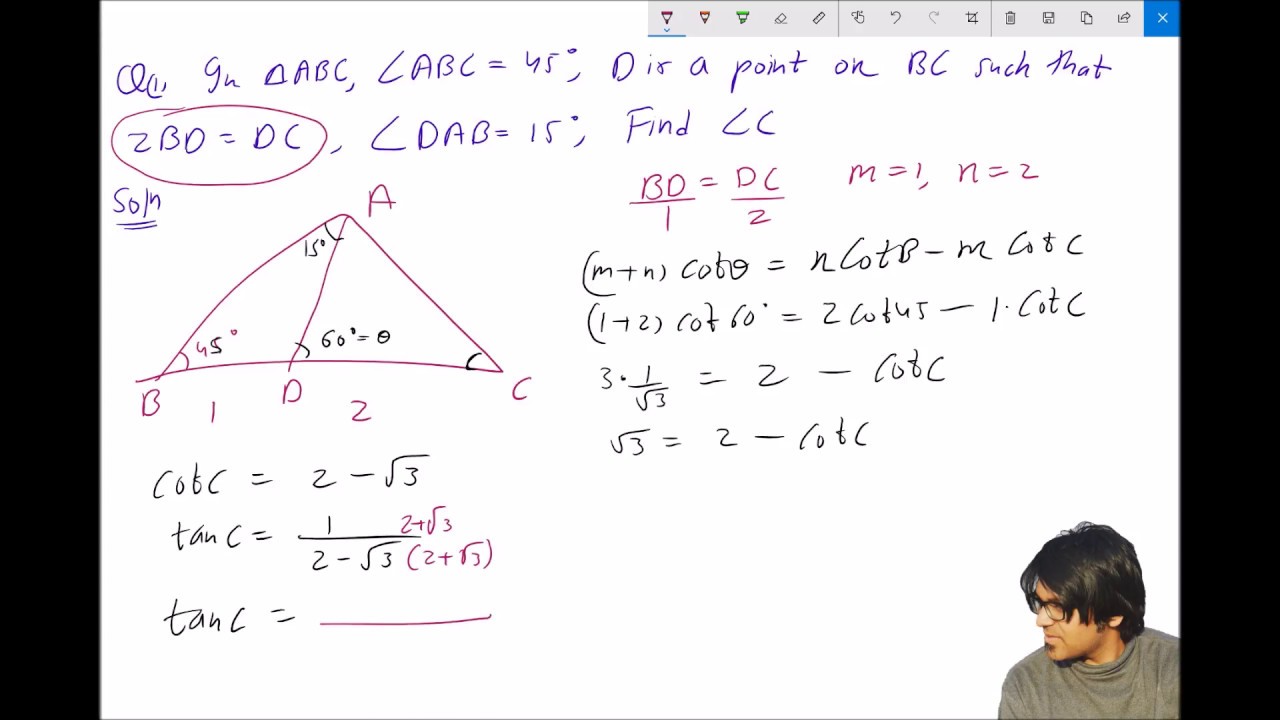 Q(1, In △ABC, ∠ABC = 45°, D is a point on BC such that
2BD = DC, ∠DAB = 15°, Find ∠C
Soln
BD/1 = DC/2 m=1, n=2
A
15°
45°
60°=θ
B
D
C
1
2
(m+n) cotθ = n CotB − m CotC
(1+2) cot 60° = 2 cot45 − 1·CotC
3·1/√3 = 2 − CotC
√3 = 2 − CotC
CotC = 2 − √3
tan C = 1/(2 − √3) 2+√3/(2+√3)
tanC =